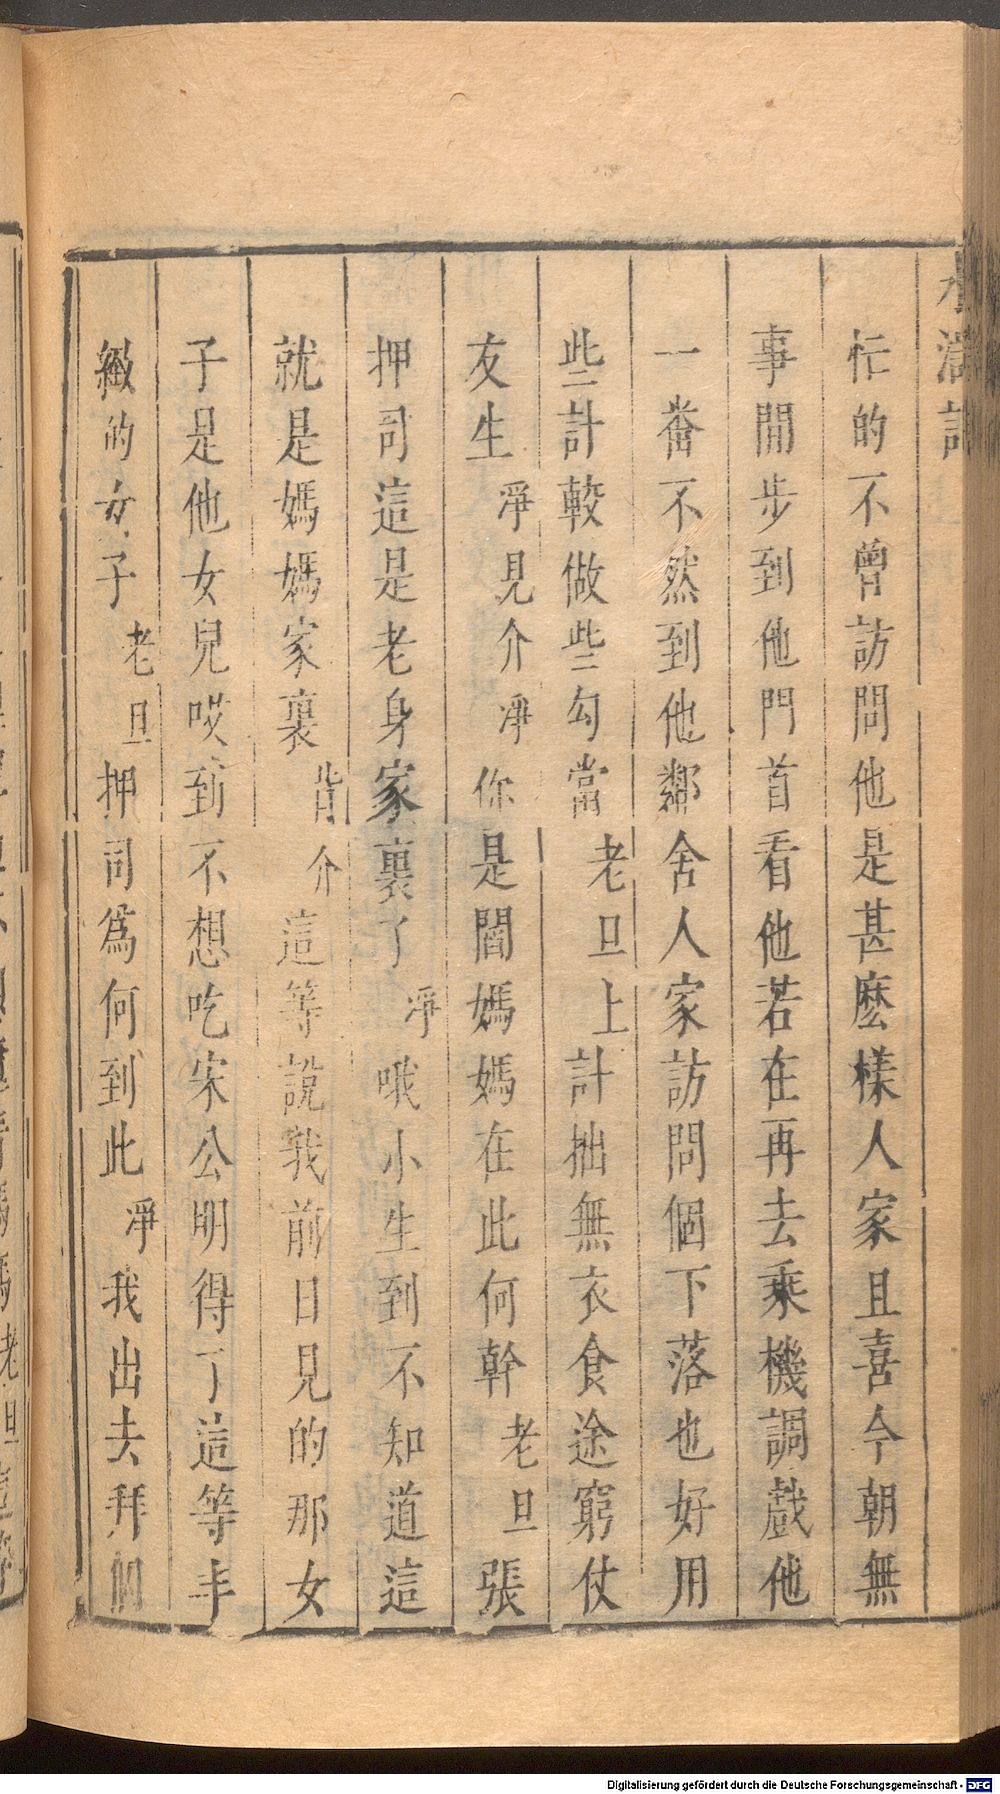 水滸記
忙的不曾訪問他是甚麽樣人家且喜今朝無
事閒步到他門首看他若在再去乘機調戲他
一番不然到他鄰舍人家訪問個下落也好用
些計較做些勾當老旦上計拙無衣食途窮仗
友生淨見介淨你是閻媽媽在此何幹老旦張
押司這是老身家裏了淨哦小生到不知道這
就是媽媽家裏背介這等說我前日見的那女
子是他女兒哎到不想吃宋公明得了這等手
緻的女子老旦押司爲何到此淨我出去拜個
Digitalisierung gefördert durch die Deutsche Forschungsgemeinschaft - DFG